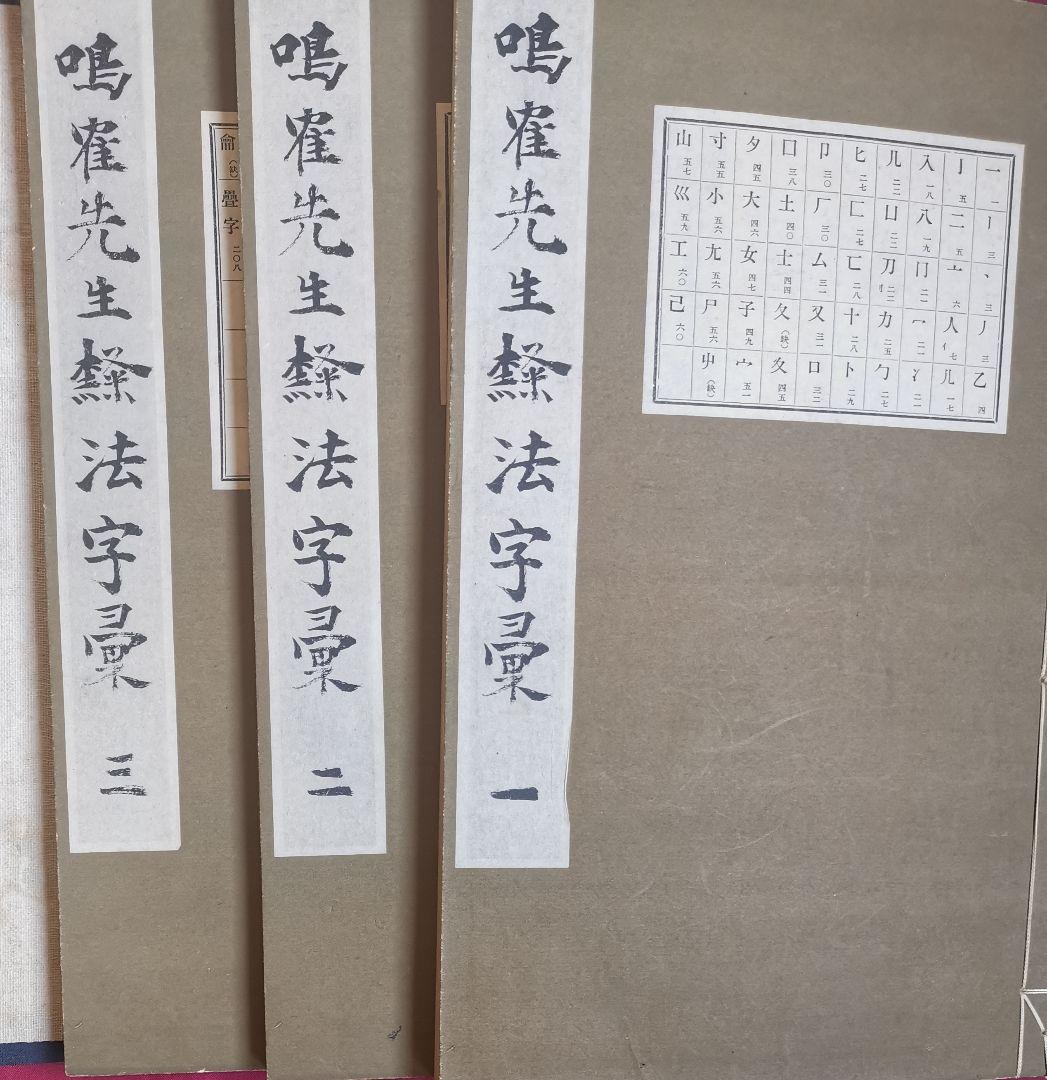 一 一 丨 三 丶 三 丿 三 乙 四
亅 五 二 五 亠 六 人亻 七 儿 一七
入 一八 八 一九 冂 二一 冖 二一 冫 二一
几 二二 凵 二二 刀刂 二二 力 二五 勹 二七
匕 二七 匚 二七 匸 二八 十 二八 卜 二九
卩 三〇 厂 三〇 厶 三一 又 三一 口 三二
囗 三八 土 四〇 士 四四 夂 (缺) 夊 四五
夕 四五 大 四六 女 四七 子 四九 宀 五一
寸 五五 小 五六 尢 五六 尸 五六 屮 (缺)
山 五七 巛 五九 工 六〇 己 六〇
鳴寉先生楷法字彙 一
鳴寉先生楷法字彙 二
龠 (缺) 疊字 二〇八
鳴寉先生楷法字彙 三